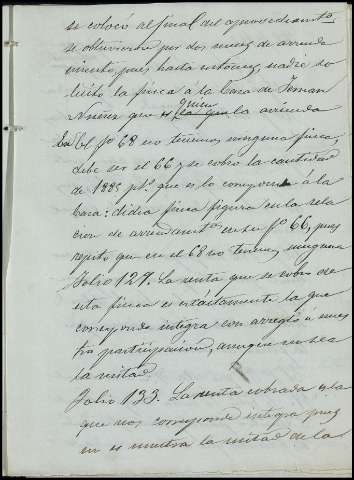 se colocó al final del aprovechamto,
se obtuvieron por dos meses de arrenda
miento, pues hasta entonces, nadie so
licitó la finca á la Casa de Fernan
Nuñez que es quien la arrienda
En el fº 68 no tenemos ninguna finca,
debe ser el 66 y se cobró la cantidad
de 1885 pts. que es lo
Casa: dicha finca figura en la rela
cion de arrendamtos en su fº 66, pues
repito que en el 68 no tenemos ninguna
Folio 127. La renta que se cobra de
esta finca es exactamente la que
corresponde integra con arreglo a nues
tra participacion, aunque no sea
la mitad
Folio 133. La renta cobrada es la
que nos corresponde integra pues
no es nuestra la mitad de la